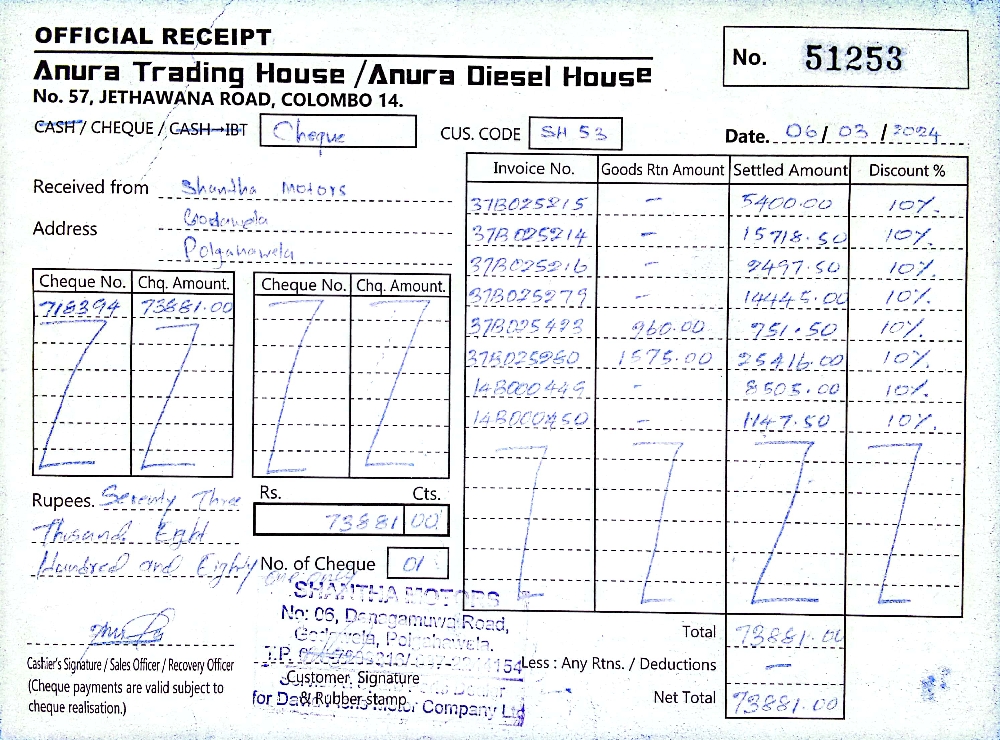 OFFICIAL RECEIPT
Anura Trading House /Anura Diesel House
No. 57, JETHAWANA ROAD, COLOMBO 14.
No. 51253
CASH / CHEQUE / CASH→IBT Cheque
CUS. CODE SH 53
Date. 06/ 03 / 2024
Received from Shantha Motors
Address Godawela
Polgahawela
Cheque No. Chq. Amount. Cheque No. Chq. Amount.
718394 73881.00
Invoice No. Goods Rtn Amount Settled Amount Discount %
37B025215 – 5400.00 10%.
37B025214 – 15718.50 10%.
37B025216 – 2497.50 10%.
37B025279 – 14445.00 10%.
37B025423 960.00 751.50 10%.
37B025280 1575.00 25416.00 10%.
14B000449 - 8505.00 10%.
14B000450 – 1147.50 10%.
Rupees. Seventy Three
Thusand Eight
Hundred and Eighty
one only
Rs. Cts.
73881 00
No. of Cheque 01
SHANTHA MOTORS
No: 06, Danagamuwa Road,
Godawela, Polgahawela.
Customer, Signature
& Rubber stamp
Motor Company Ltd
Cashier's Signature / Sales Officer / Recovery Officer
(Cheque payments are valid subject to
cheque realisation.)
Total 73881.00
Less : Any Rtns. / Deductions –
Net Total 73881.00